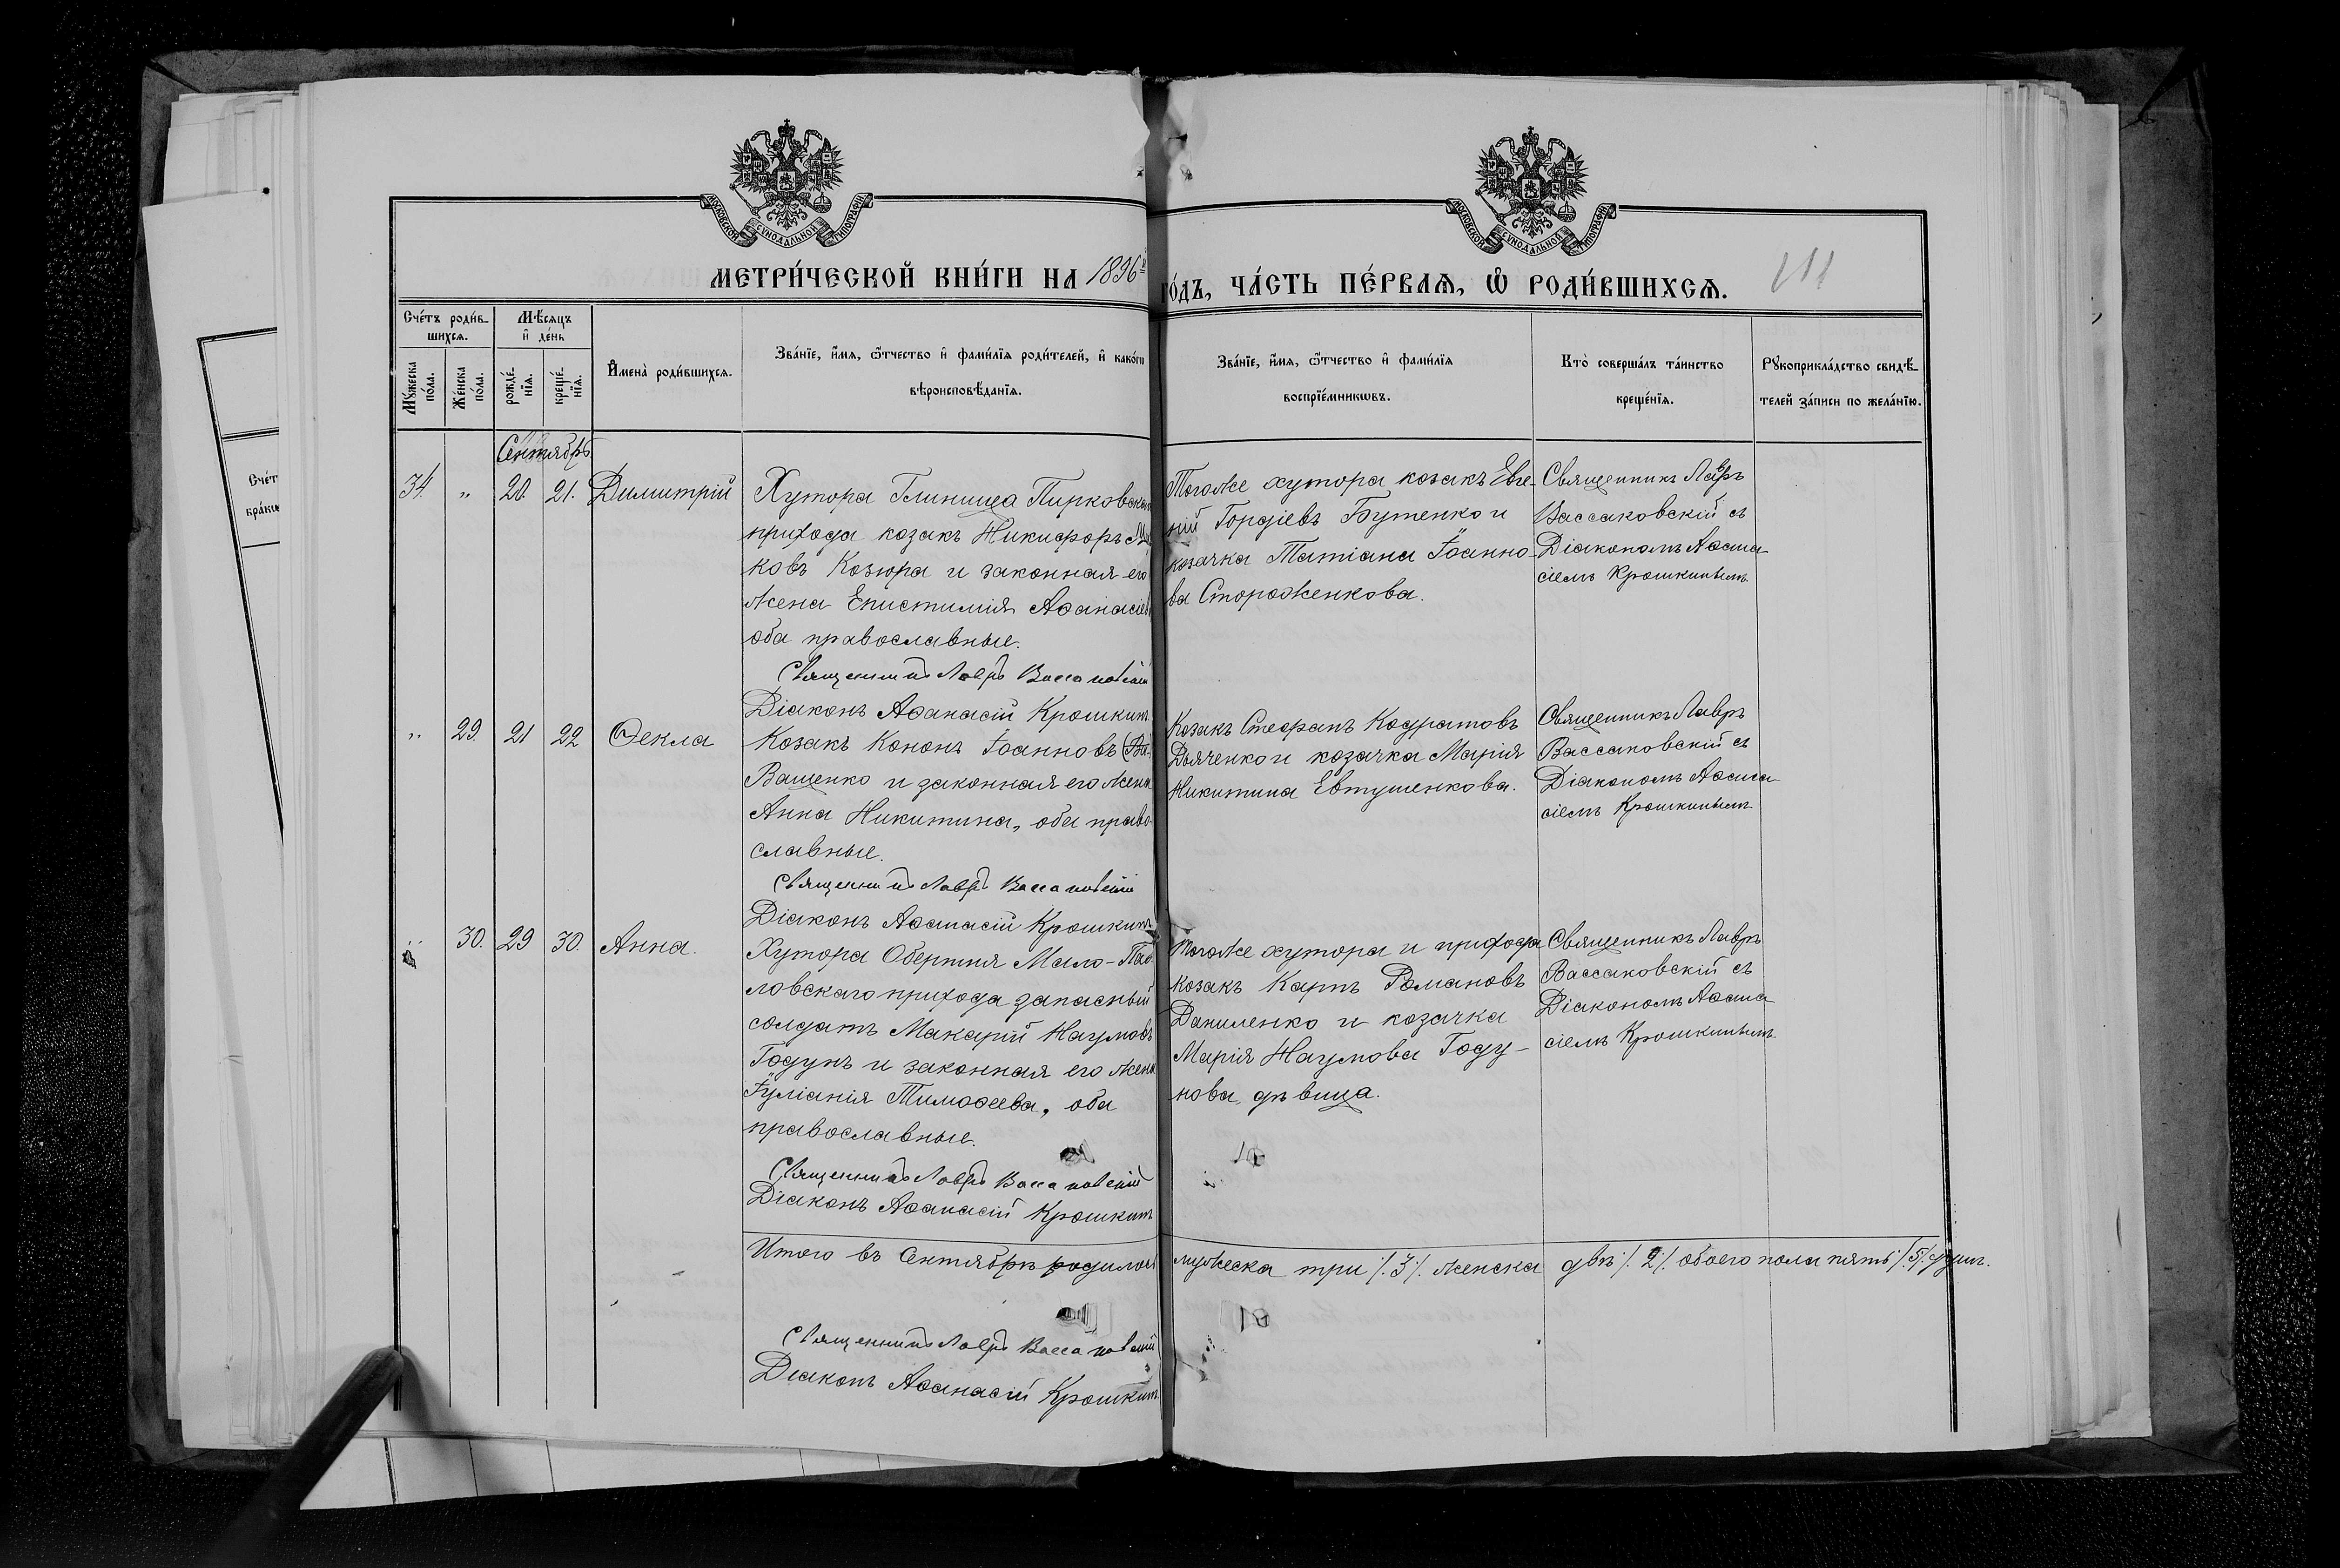 МОСКОВСКОЙ СѴНОДАЛЬНОЙ ТИПОГРАФІИ
МОСКОВСКОЙ СѴНОДАЛЬНОЙ ТИПОГРАФІИ
МЕТРИ́ЧЕСКОЙ КНИ́ГИ НА 1896й ГО́ДЪ, ЧА́СТЬ ПЕ́РВАѦ, Ѡ҆ РОДИ́ВШИХСѦ.
Сче́тъ роди́в-
шихсѧ.
Мѣ́сѧцъ
и҆ де́нь
Мꙋ́жеска по́ла.
Же́нска по́ла.
рожде́-
нїѧ.
креще́-
нїѧ.
И҆мена̀ роди́вшихсѧ.
Зва́нїе, и҆́мѧ, ѻ҆́тчество и҆ фами́лїѧ роди́телей, и҆ како́гѡ
вѣроисповѣ́данїѧ.
Зва́нїе, и҆́мѧ, ѻ҆́тчество и҆ фами́лїѧ
воспрїе́мникѡвъ.
Кто̀ соверша́лъ та́инство
креще́нїѧ.
Рꙋкоприкла́дство свидѣ́-
телей за́писи по жела́нїю.
Счéт
бра́ки
Сентябрь
34. " 20. 21. Димитрій
Хутора Глинища Пирковскаго
прихода козакъ Никифоръ
ковъ Козюра и законная его
жена Епистимія Аѳанасіева
оба православные.
Священникъ Лавръ Вассаковскій
Діаконъ Аѳанасій Крошкинъ
Тогоже хутора козакъ Евге-
ній Гордіевъ Бутенко и
козачка Татіана Іоанно-
ва Стороженкова.
Священникъ Лавръ
Вассаковскій съ
Діакономъ Аѳана-
сіемъ Крошкинымъ
" 29. 21 22 Ѳекла
Козакъ Кононъ Іоанновъ (Ва)
Ващенко и законная его жена
Анна Никитина, оба право-
славные.
Священникъ Лавръ Вассаковскій
Діаконъ Аѳанасій Крошкинъ
Козакъ Стефанъ Кодратовъ
Дьяченко и козачка Марія
Никитина Евтушенкова.
Священникъ Лавръ
Вассаковскій съ
Діакономъ Аѳана-
сіемъ Крошкинымъ
" 30. 29 30. Анна.
Хутора Обертня Мало-Пав-
ловскаго прихода запасный
солдатъ Макарій Наумовъ
Годунъ и законная его жена
Іуліанія Тимоѳеева, оба
православные.
Священникъ Лавръ Вассаковскій
Діаконъ Аѳанасій Крошкинъ
Тогоже хутора и прихода
козакъ Карпъ Романовъ
Даниленко и козачка
Марія Наумова Году-
нова, дѣвица.
Священникъ Лавръ
Вассаковскій съ
Діакономъ Аѳана-
сіемъ Крошкинымъ
Итого въ Сентябрѣ родилось мужеска три /.3/. женска двѣ /.2/. обоего пола пять /.5/. душъ.
Священникъ Лавръ Вассаковскій
Діаконъ Аѳанасій Крошкинъ